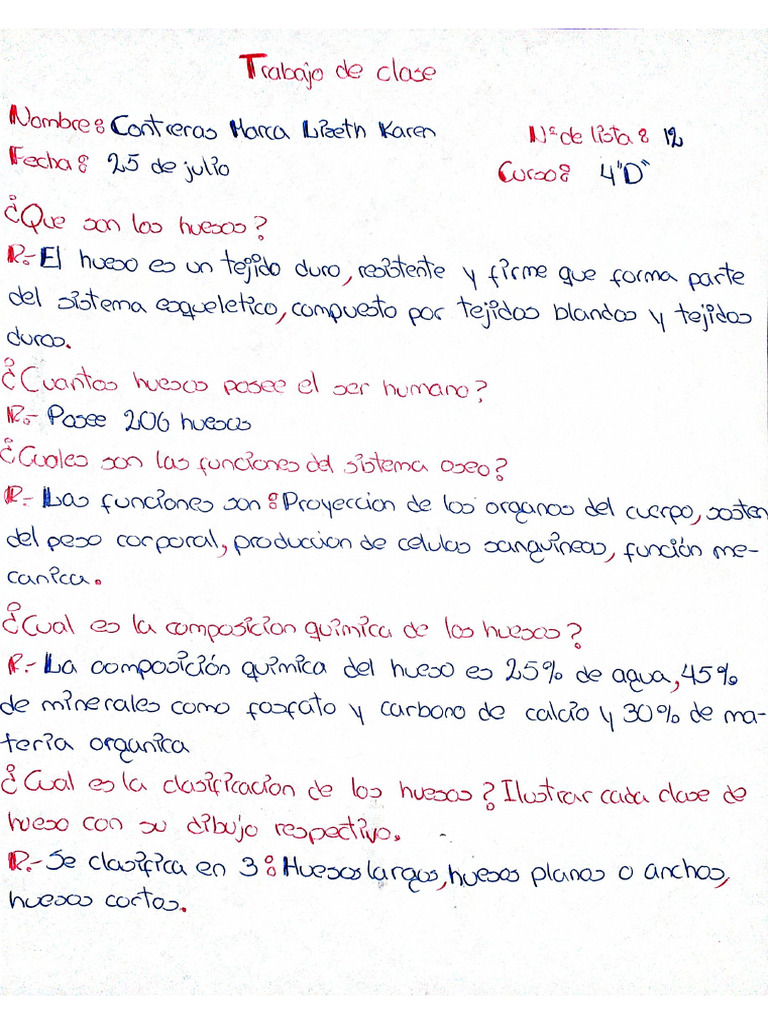 Trabajo de clase
Nombre: Contreras Marca Lizeth Karen Nº de lista: 12
Fecha: 25 de julio Curso: 4"D"
¿Que son los huesos?
R.- El hueso es un tejido duro, resistente y firme que forma parte
del sistema esqueletico, compuesto por tejidos blandos y tejidos
duros.
¿Cuantos huesos posee el ser humano?
R.- Posee 206 huesos
¿Cuales son las funciones del sistema oseo?
R.- Las funciones son: Proyeccion de los organos del cuerpo, sosten
del peso corporal, produccion de celulas sanguineas, función me-
canica.
¿Cual es la composicion quimica de los huesos?
R.- La composición quimica del hueso es 25% de agua, 45%
de minerales como fosfato y carbono de calcio y 30% de ma-
teria organica
¿Cual es la clasificacion de los huesos? Ilustrar cada clase de
hueso con su dibujo respectivo.
R.- Se clasifica en 3: Huesos largos, huesos planos o anchos,
huesos cortos.